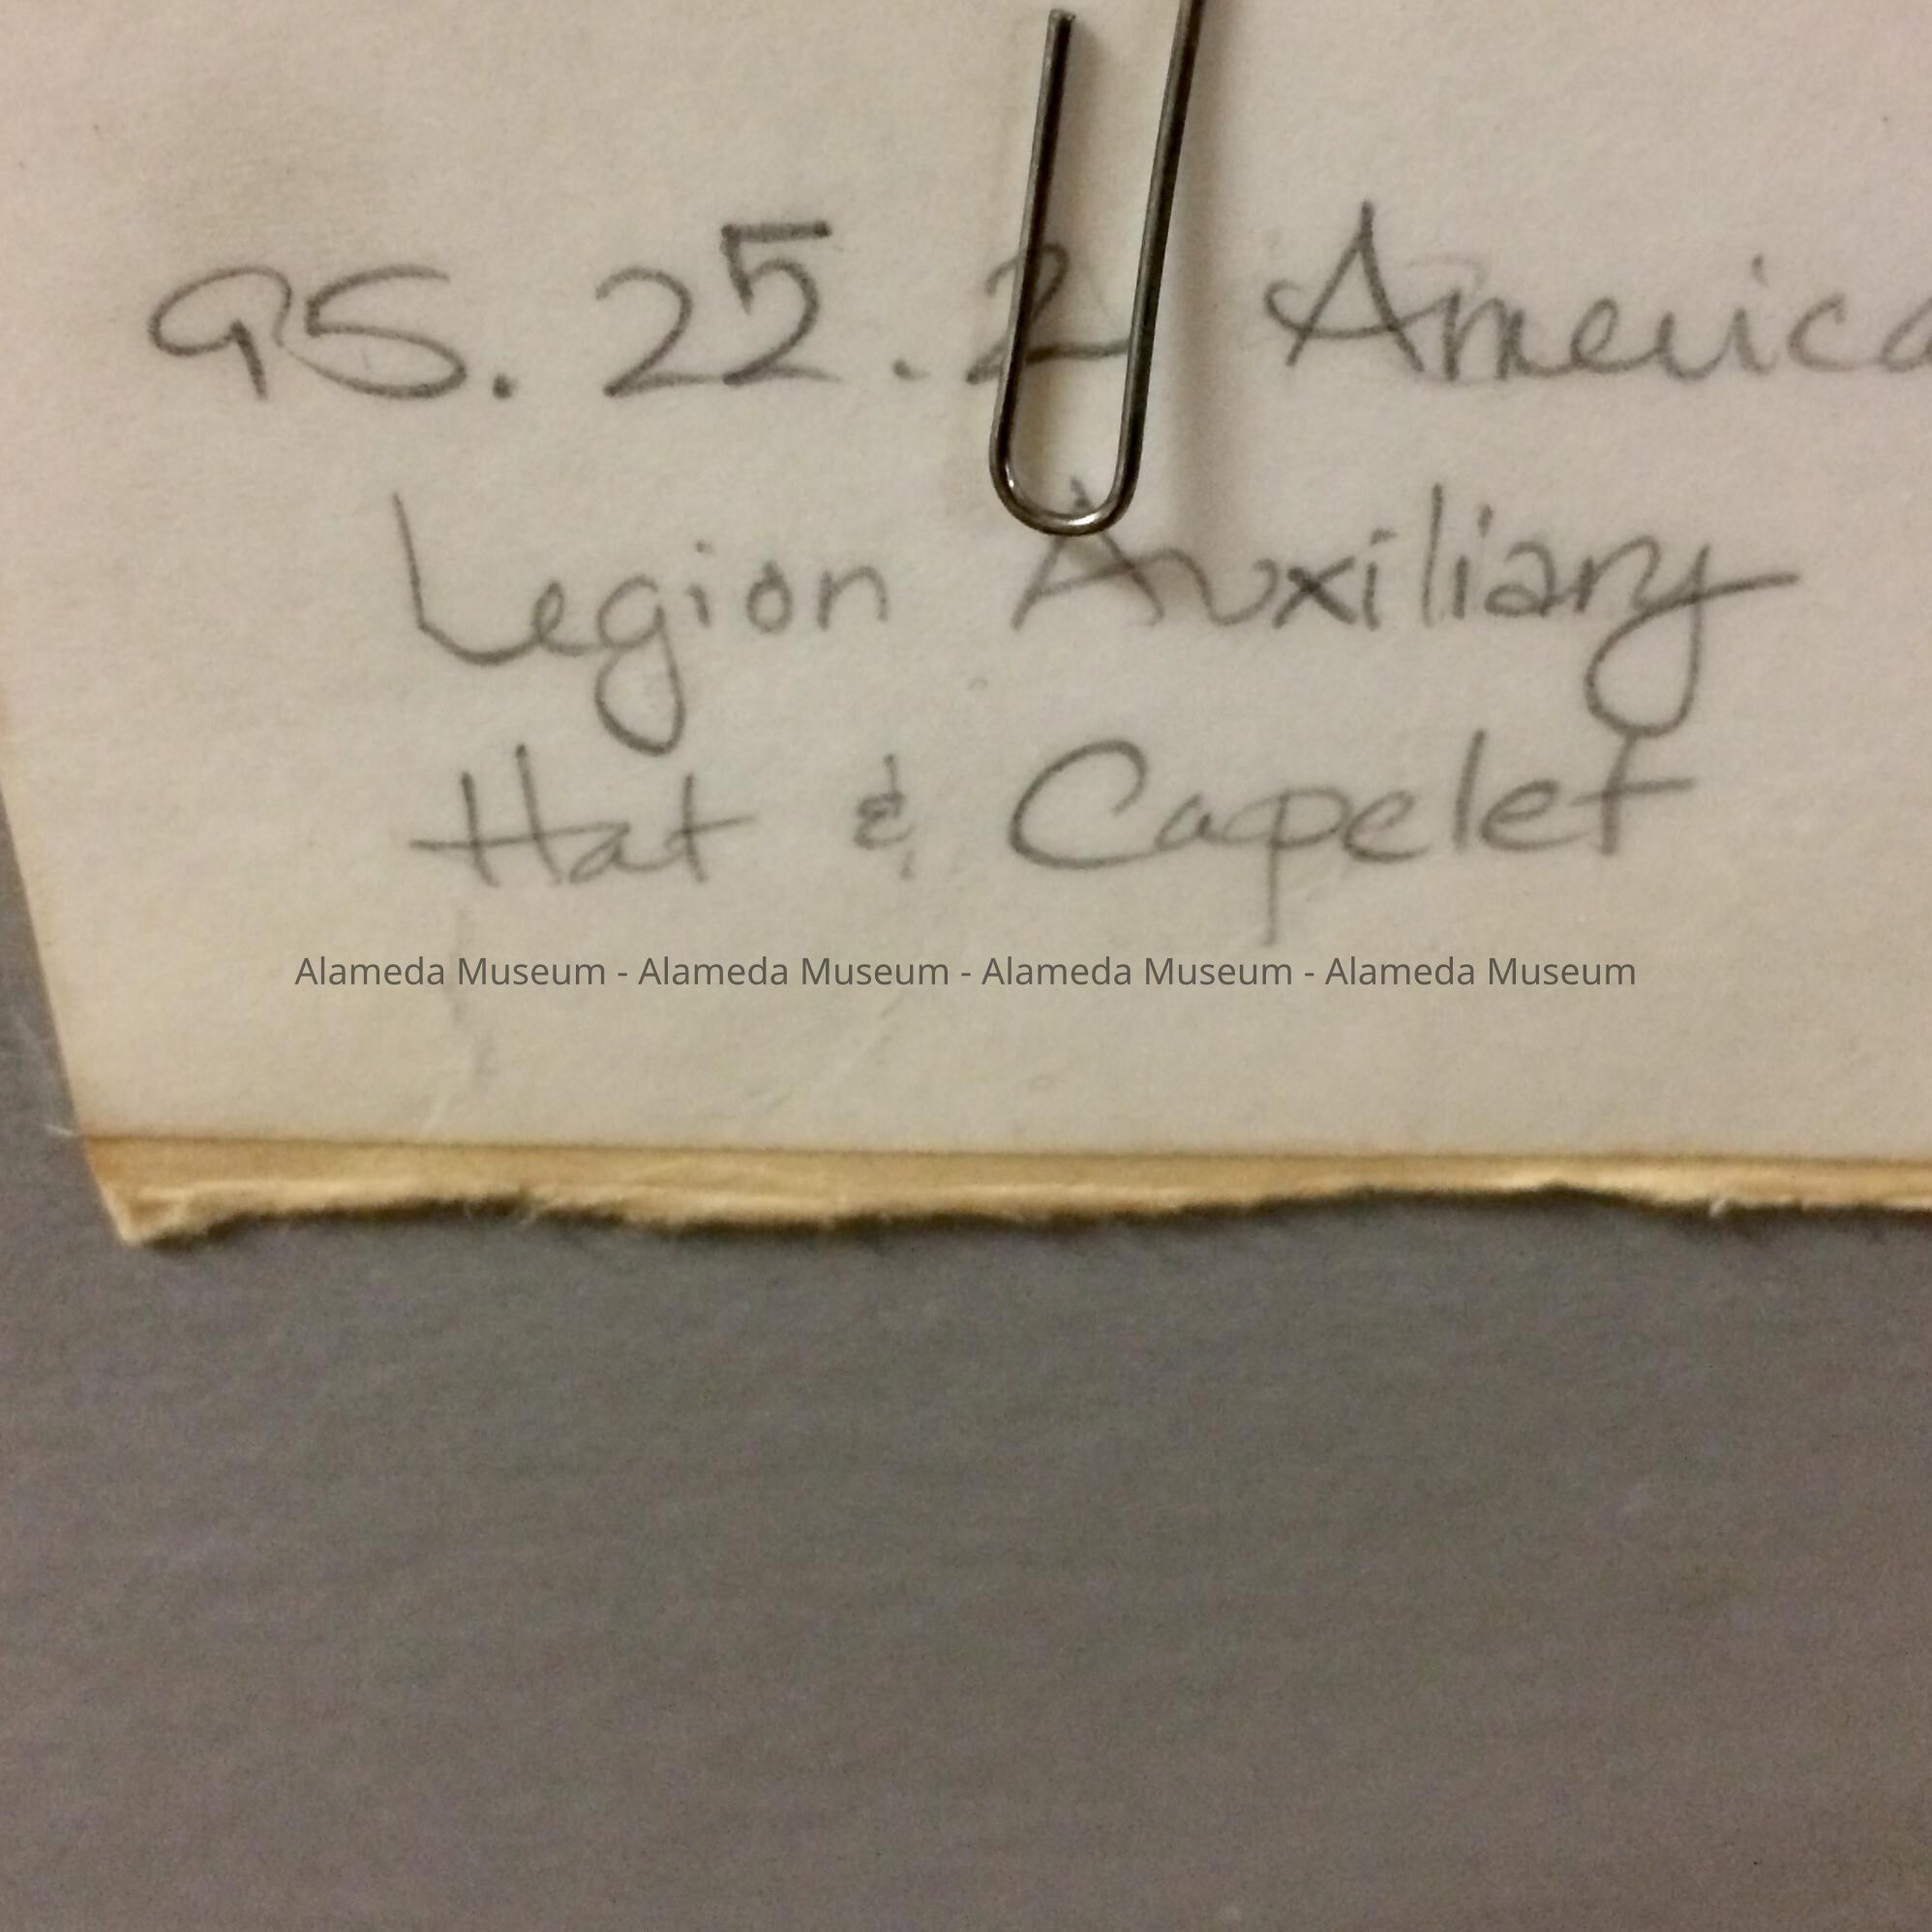 95.25.2 America
Legion Auxiliary
Hat & Capelet
Alameda Museum - Alameda Museum - Alameda Museum - Alameda Museum